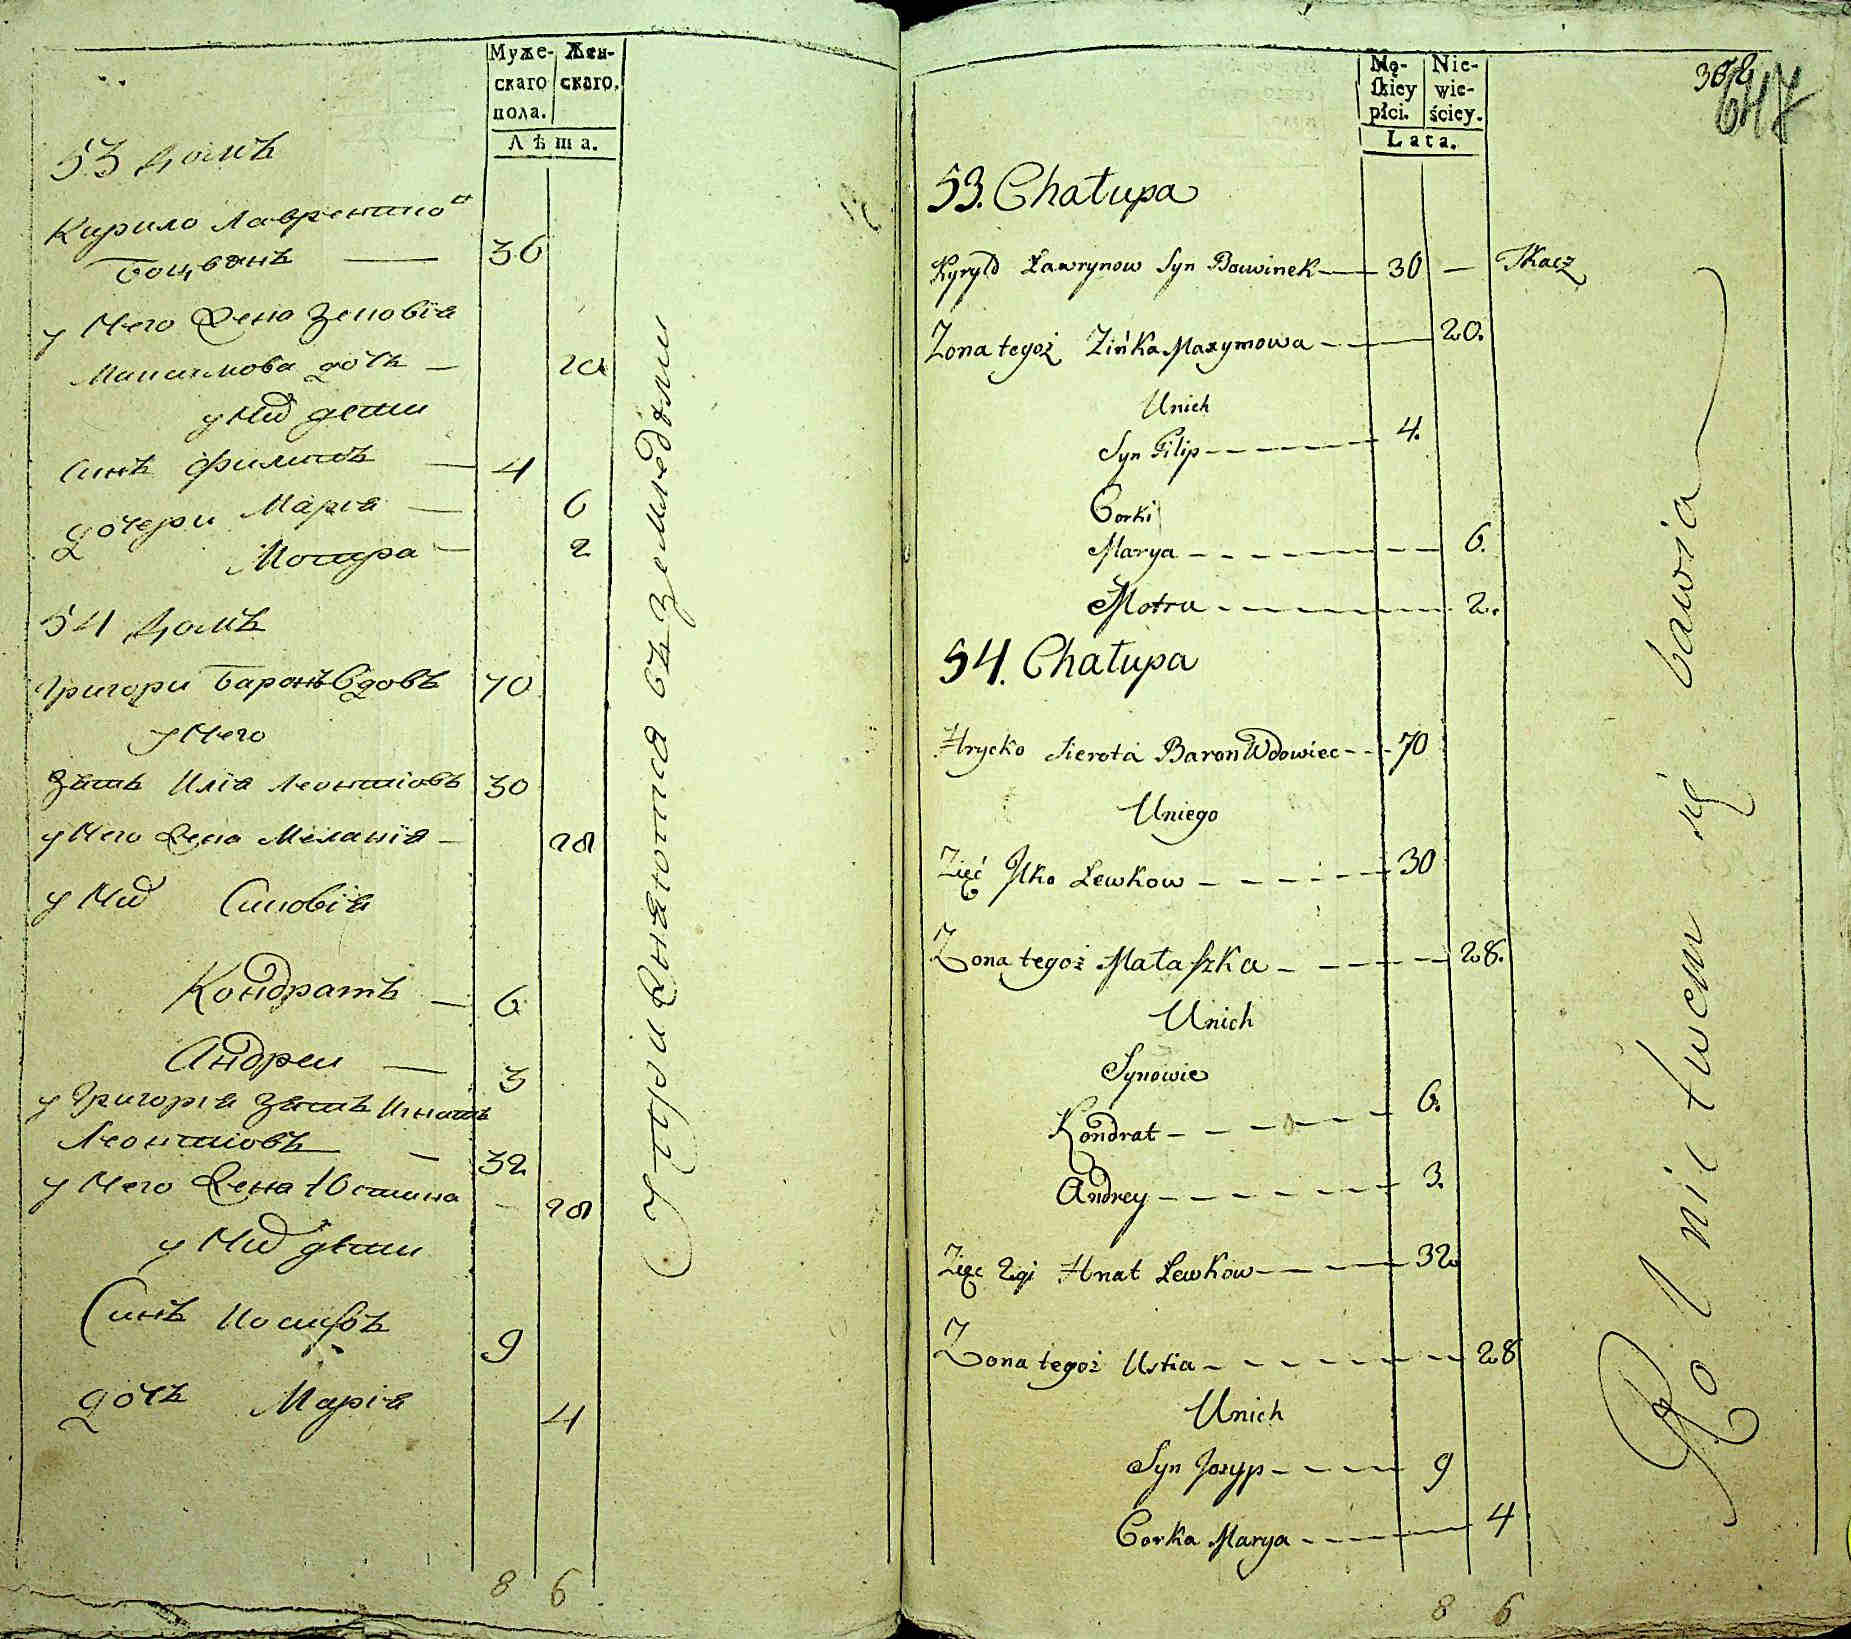 Муже-
скаго
пола.
Жен-
скаго.
Лѣта.
53 домъ
Кирило Лаврентио
30
у него жена Зеновія
Максимова дочь — 20
у них дети
Синъ Филипъ — 4
дочери Марія — 6
Мотра — 2
54 домъ
Григори Баронъ Вдовъ 70
у него
Зять Илія Леонтіовъ 30
у него жена Меланія — 28
у них Синовія
Кондратъ — 6
Андреи — 3
у Григорія Зять Игнатъ
Леонтіовъ — 32
у него жена Юстина — 28
у них дети
Синъ Иосифъ 9
дочь Марія 4
8 6
упражняются въ земледѣліи
Mę-
skiey
płci.
Nie-
wie-
ściey.
Lata.
302
647
53. Chałupa
Kyryło Ławrynow Syn Bowinek — 30 — Tkacz
Zona tegoż Zińka Maxymowa — 20.
Unich
Syn Filip — 4.
Corki
Marya — 6.
Motra — 2.
54. Chałupa
Hrycko Sierota Baron Wdowiec — 70
Uniego
Zięć Ilko Lewkow — 30
Zona tegoż Małaszka — 28.
Unich
Synowie
Kondrat — 6.
Andrey — 3.
Zięc 2gi Hnat Lewkow — 32
Zona tegoż Ustia — 28
Unich
Syn Jozyp — 9
Corka Marya — 4
8 6
Rolnictwem się bawia